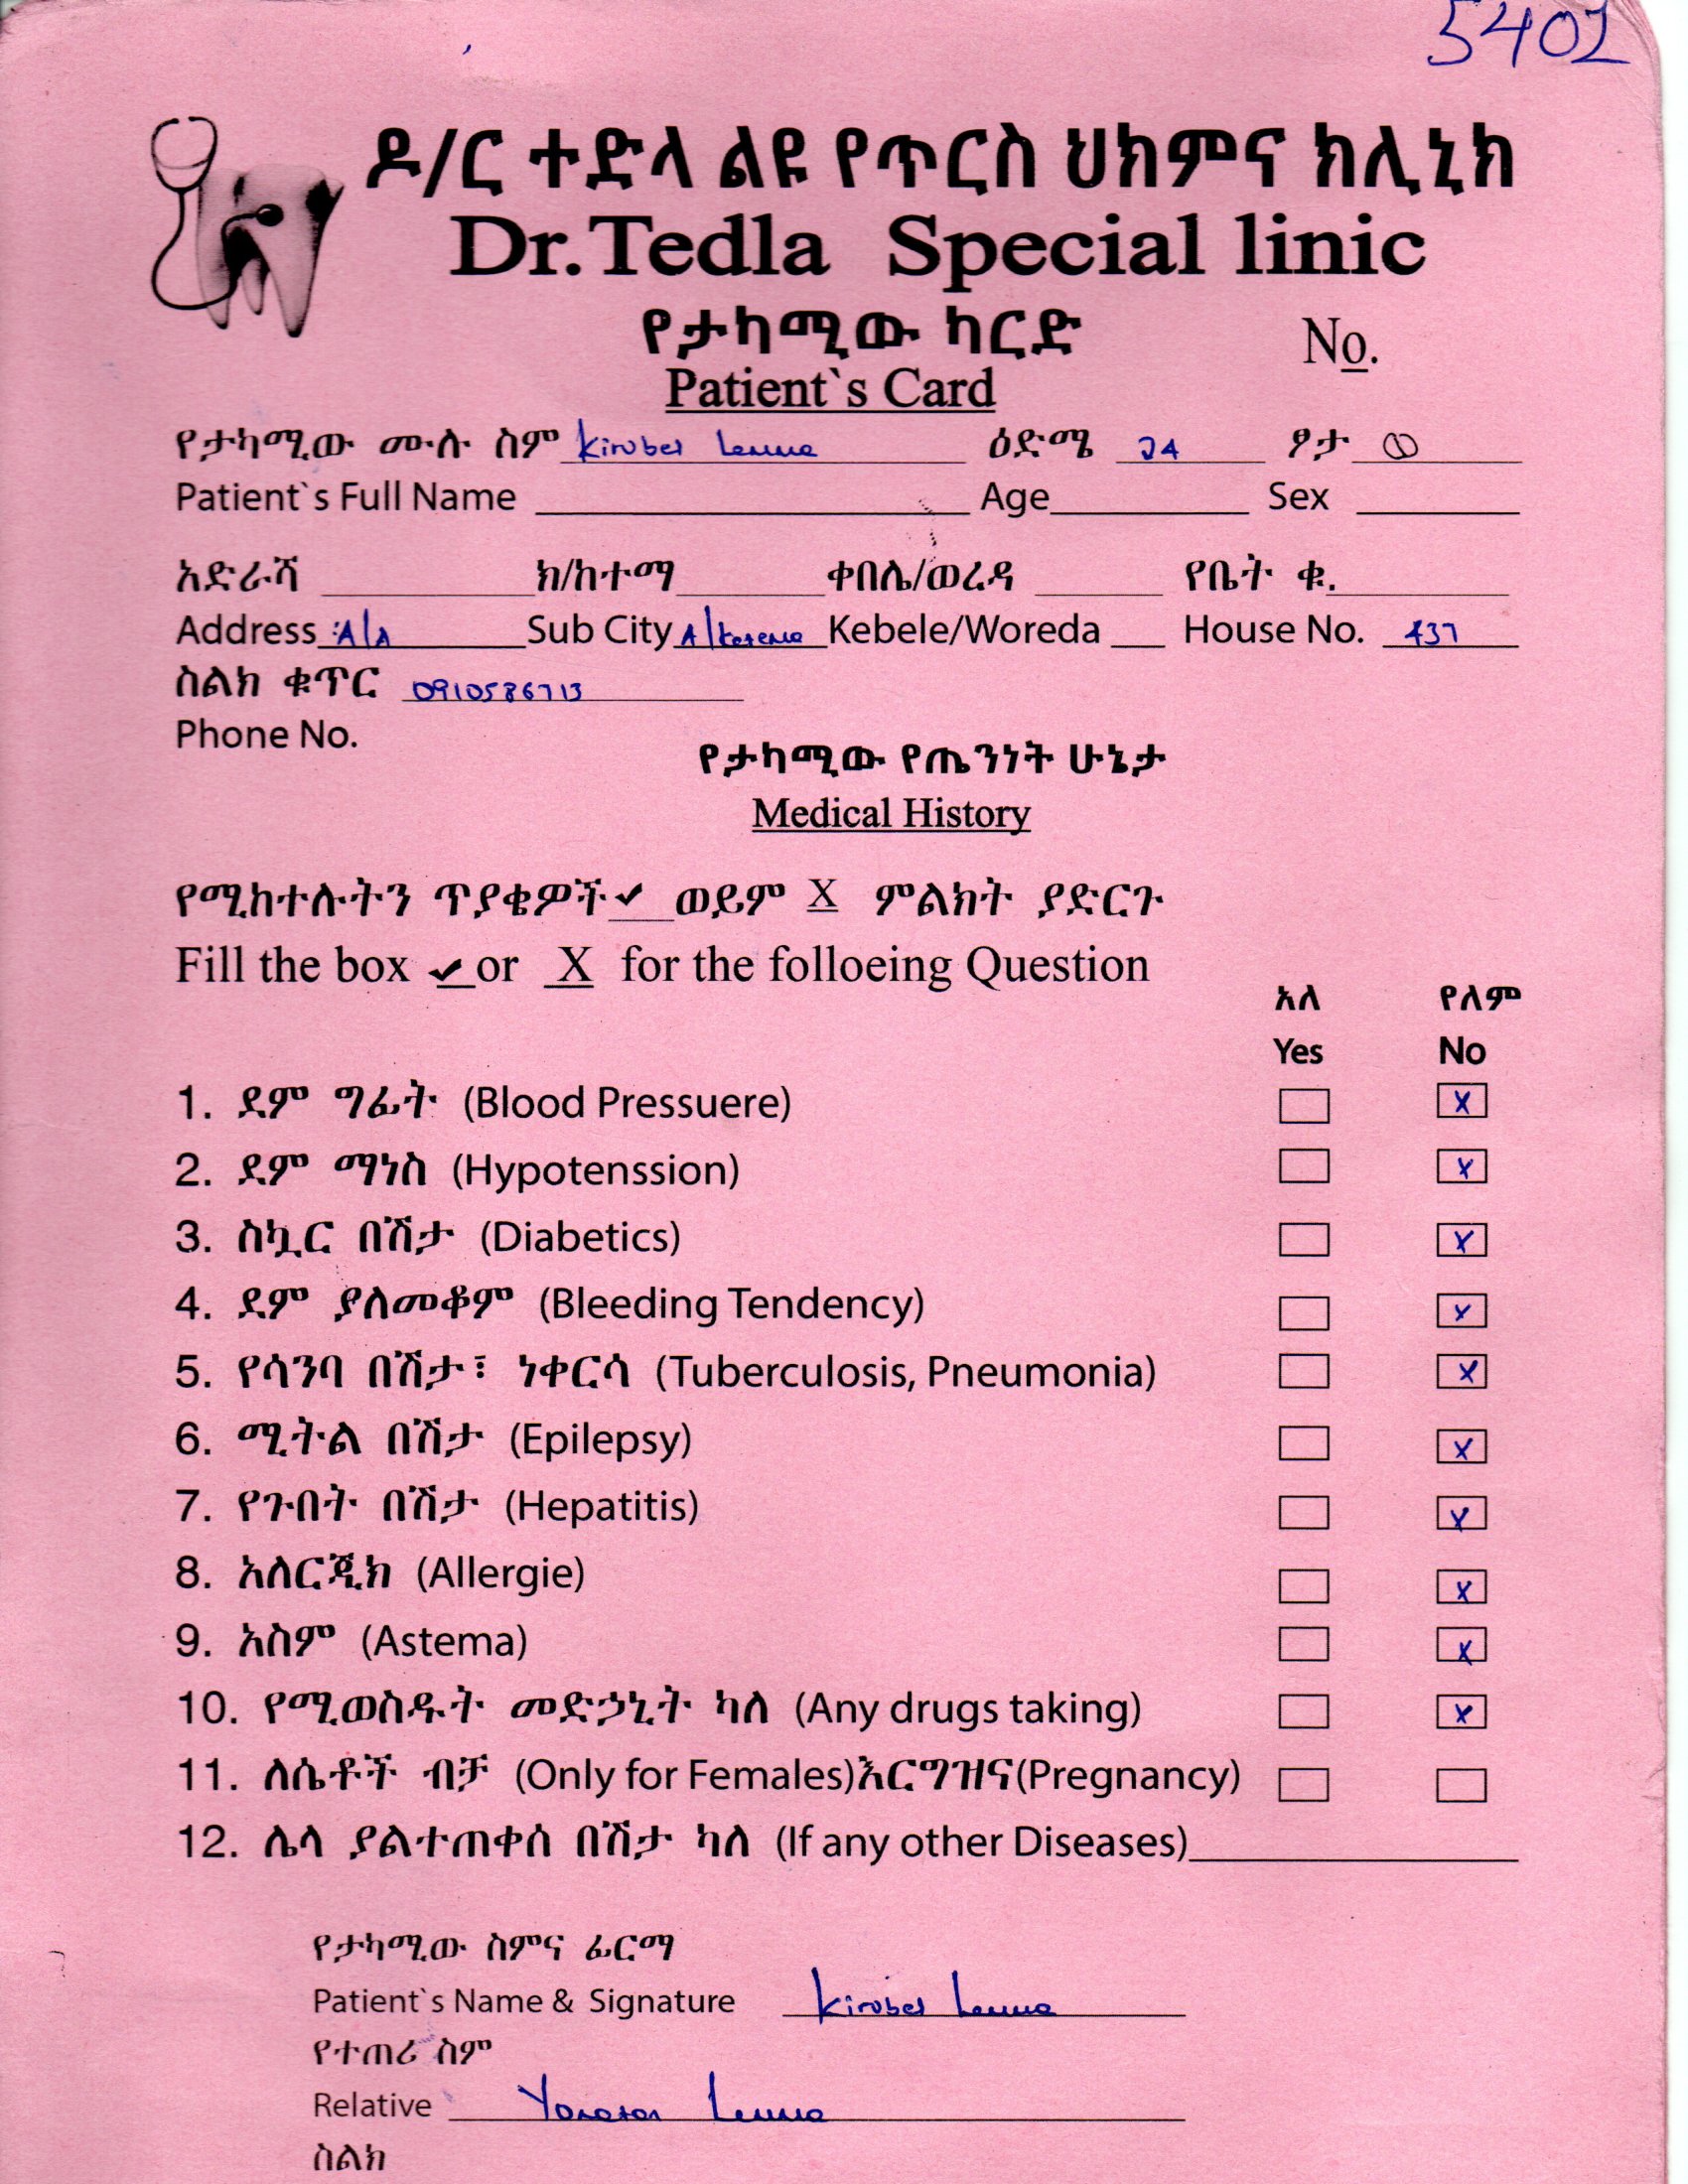 5402
ዶ/ር ተድላ ልዩ የጥርስ ህክምና ክሊኒክ
Dr.Tedla Special linic
የታካሚው ካርድ
No.
Patient`s Card
የታካሚው ሙሉ ስም Kirubel Lemma ዕድሜ 24 ፆታ
Patient`s Full Name Age Sex
አድራሻ ክ/ከተማ ቀበሌ/ወረዳ የቤት ቁ.
Address A/A Sub City Kebele/Woreda House No. 437
ስልክ ቁጥር 0910586713
Phone No.
የታካሚው የጤንነት ሁኔታ
Medical History
የሚከተሉትን ጥያቄዎች ✓ ወይም X ምልክት ያድርጉ
Fill the box ✓ or X for the folloeing Question
አለ የለም
Yes No
1. ደም ግፊት (Blood Pressuere) X
2. ደም ማነስ (Hypotenssion) X
3. ስኳር በሽታ (Diabetics) X
4. ደም ያለመቆም (Bleeding Tendency) X
5. የሳንባ በሽታ፣ ነቀርሳ (Tuberculosis, Pneumonia) X
6. ሚትል በሽታ (Epilepsy) X
7. የጉበት በሽታ (Hepatitis) X
8. አለርጂክ (Allergie) X
9. አስም (Astema) X
10. የሚወስዱት መድኃኒት ካለ (Any drugs taking) X
11. ለሴቶች ብቻ (Only for Females)እርግዝና(Pregnancy)
12. ሌላ ያልተጠቀሰ በሽታ ካለ (If any other Diseases)
የታካሚው ስምና ፊርማ
Patient`s Name & Signature Kirubel Lemma
የተጠሪ ስም
Relative Lemma
ስልክ